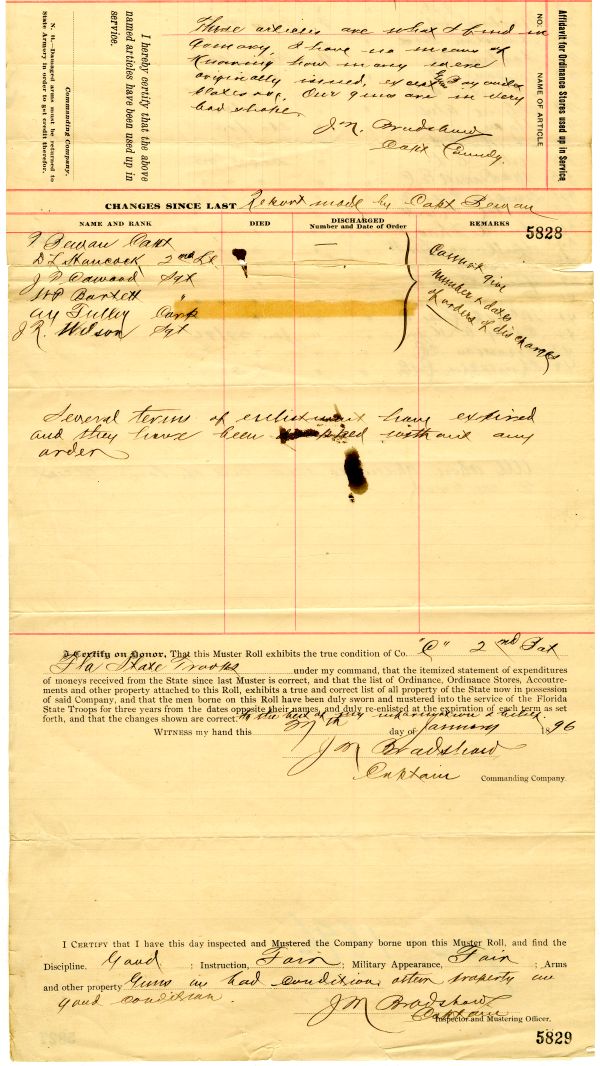 Affidavit for Ordinance Stores used up in Service
NO. NAME OF ARTICLE
These articles are what I find in
Company, I have no means of
knowing how many were
originally issued, except
Our guns are in very
bad shape.
J. N. Bradshaw
Capt Comdg.
I hereby certify that the above
named articles have been used up in
service.
Commanding Company.
N. B.—Damaged arms must be returned to
State Armory in order to get credit therefor.
CHANGES SINCE LAST Report made by Capt Bewan
NAME AND RANK DIED DISCHARGED REMARKS
Number and Date of Order
5828
Bewan Capt
D L Hancock 2nd Lt
J P Cawood Sgt
W P Bartlett "
Tulley Corp
J R. Wilson Sgt
Cannot give
number & dates
of orders of discharges
Several terms of enlistment have expired
and they have been without any
order
I Certify on Honor, That this Muster Roll exhibits the true condition of Co. "C" 2nd Bat
Fla State Troops under my command, that the itemized statement of expenditures
of moneys received from the State since last Muster is correct, and that the list of Ordinance, Ordinance Stores, Accoutre-
ments and other property attached to this Roll, exhibits a true and correct list of all property of the State now in possession
of said Company, and that the men borne on this Roll have been duly sworn and mustered into the service of the Florida
State Troops for three years from the dates opposite their names, and duly re-enlisted at the expiration of each term as set
forth, and that the changes shown are correct. to the best of my information & belief.
WITNESS my hand this day of January 1896
J N Bradshaw
Captain Commanding Company.
I CERTIFY that I have this day inspected and Mustered the Company borne upon this Muster Roll, and find the
Discipline, Good ; Instruction, Fair ; Military Appearance, Fair ; Arms
and other property Guns in bad condition, other property in
good condition.
J N Bradshaw
Captain
Inspector and Mustering Officer.
5829